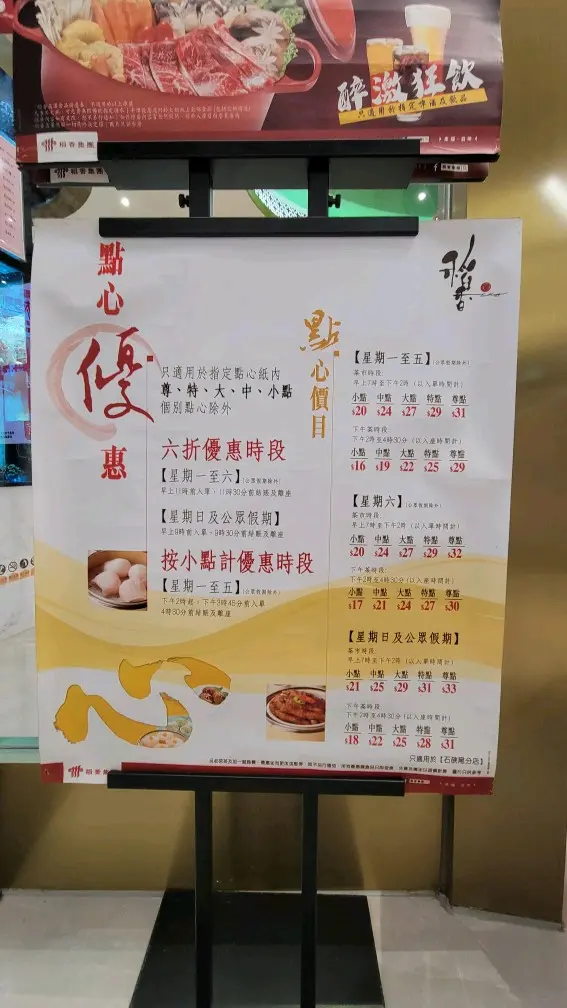 醉激狂飲
只適用於指定啤酒及飲品
稻香集團
稻香集團
點心優惠
只適用於指定點心紙內
尊、特、大、中、小點
個別點心除外
六折優惠時段
【星期一至六】(公眾假期除外)
早上11時前入單，11時30分前結賬及離座
【星期日及公眾假期】
早上9時前入單，9時30分前結賬及離座
按小點計優惠時段
【星期一至五】(公眾假期除外)
下午2時起，下午2時45分前入單
4時30分前結賬及離座
心
點心價目
稻香
【星期一至五】(公眾假期除外)
茶市時段
早上7時至下午2時 (以入單時間計)
小點 中點 大點 特點 尊點
$20 $24 $27 $29 $31
下午茶時段
下午2時至4時30分 (以入座時間計)
小點 中點 大點 特點 尊點
$16 $19 $22 $25 $29
【星期六】(公眾假期除外)
茶市時段
早上7時至下午2時 (以入單時間計)
小點 中點 大點 特點 尊點
$20 $24 $27 $29 $32
下午茶時段
下午2時至4時30分 (以入座時間計)
小點 中點 大點 特點 尊點
$17 $21 $24 $27 $30
【星期日及公眾假期】
茶市時段
早上7時至下午2時 (以入單時間計)
小點 中點 大點 特點 尊點
$21 $25 $29 $31 $33
下午茶時段
下午2時至4時30分 (以入座時間計)
小點 中點 大點 特點 尊點
$18 $22 $25 $28 $31
只適用於【石硤尾分店】
稻香集團